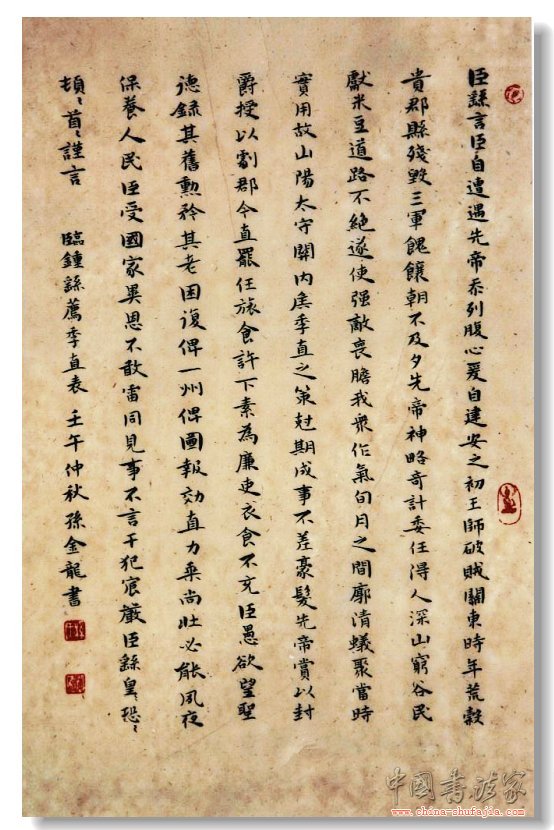 臣繇言臣自遭遇先帝忝列腹心爰自建安之初王師破賊關東時年荒穀
貴郡縣殘毀三軍餽饟朝不及夕先帝神略奇計委任得人深山窮谷民
獻米豆道路不絕遂使强敵喪膽我衆作氣旬月之間廓清蟻聚當時
實用故山陽太守關內侯季直之策尅期成事不差豪髮先帝賞以封
爵授以劇郡今直罷任旅食許下素為廉吏衣食不充臣愚欲望聖
德錄其舊勳矜其老困復俾一州俾圖報効直力氣尚壯必能夙夜
保養人民臣受國家異恩不敢雷同見事不言干犯宸嚴臣繇皇〻恐〻
頓〻首〻謹言 臨鍾繇薦季直表 壬午仲秋 孫金龍書
中國書法家
www.china-shufajia.com